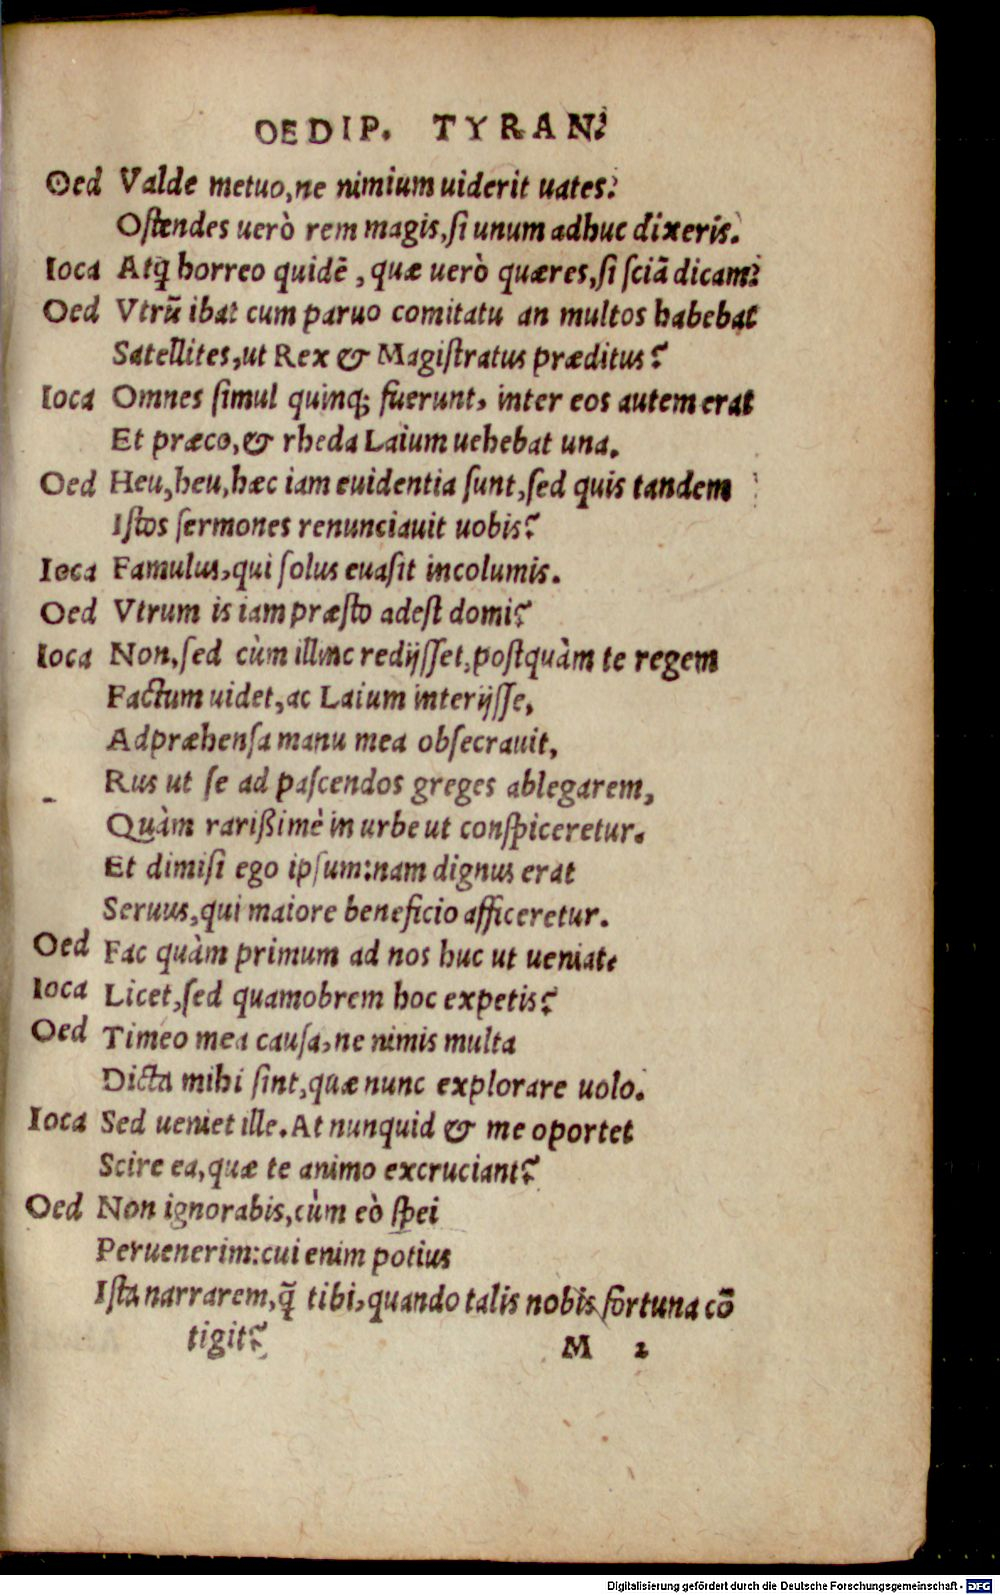 OEDIP. TYRAN.
Oed Valde metuo, ne nimium uiderit uates.
Ostendes uerò rem magis, si unum adhuc dixeris.
Ioca Atq́; horreo quidē, quæ uerò quæres, si sciā dicam.
Oed Vtrū ibat cum paruo comitatu an multos habebat
Satellites, ut Rex & Magistratus præditus?
Ioca Omnes simul quinq; fuerunt, inter eos autem erat
Et præco, & rheda Laium uehebat una.
Oed Heu, heu, hæc iam euidentia sunt, sed quis tandem
Istos sermones renunciauit uobis?
Ioca Famulus, qui solus euasit incolumis.
Oed Vtrum is iam præsto adest domi?
Ioca Non, sed cùm illinc redijsset, postquàm te regem
Factum uidet, ac Laium interijsse,
Adpræhensa manu mea obsecrauit,
Rus ut se ad pascendos greges ablegarem,
Quàm rarißimè in urbe ut conspiceretur.
Et dimisi ego ipsum: nam dignus erat
Seruus, qui maiore beneficio afficeretur.
Oed Fac quàm primum ad nos huc ut ueniat.
Ioca Licet, sed quamobrem hoc expetis?
Oed Timeo mea causa, ne nimis multa
Dicta mihi sint, quæ nunc explorare uolo.
Ioca Sed ueniet ille. At nunquid & me oportet
Scire ea, quæ te animo excruciant?
Oed Non ignorabis, cùm eò spei
Peruenerim: cui enim potius
Ista narrarem, q̃ tibi, quando talis nobis fortuna cō
tigit?
M 2
Digitalisierung gefördert durch die Deutsche Forschungsgemeinschaft - DFG